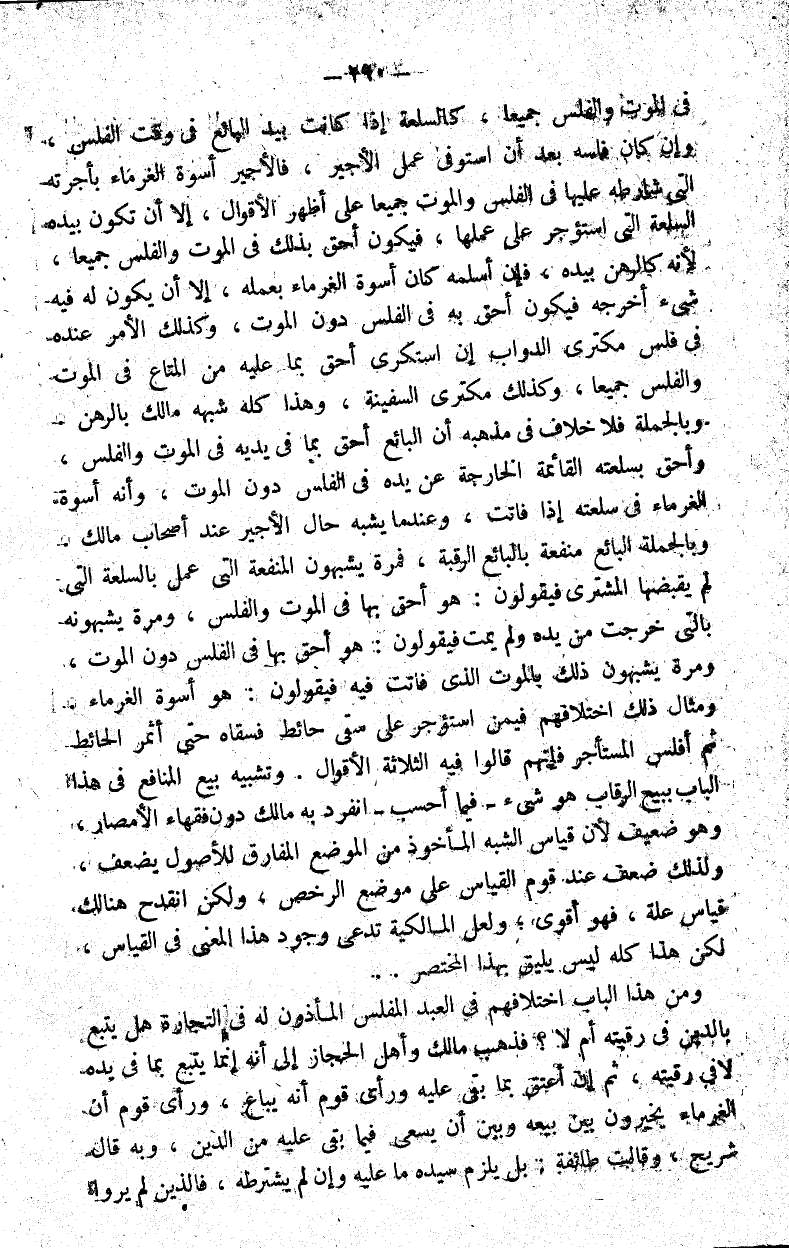 — ٢٩٠ —
فى الموت والفلس جميعا ، كالسلعة إذا كانت بيد البائع فى وقت الفلس ،
وإن كان فلسه بعد أن استوفى عمل الأجير ، فالأجير أسوة الغرماء بأجرته
التى شارطه عليها فى الفلس والموت جميعا على أظهر الأقوال ، إلا أن تكون بيده
السلعة التى استؤجر على عملها ، فيكون أحق بذلك فى الموت والفلس جميعا ،
لأنه كالرهن بيده ، فإن أسلمه كان أسوة الغرماء بعمله ، إلا أن يكون له فيه
شىء أخرجه فيكون أحق به فى الفلس دون الموت ، وكذلك الأمر عنده
فى فلس مكترى الدواب إن استكرى أحق بما عليه من المتاع فى الموت
والفلس جميعا ، وكذلك مكترى السفينة ، وهذا كله شبهه مالك بالرهن .
وبالجملة فلا خلاف فى مذهبه أن البائع أحق بما فى يديه فى الموت والفلس ،
وأحق بسلعته القائمة الخارجة عن يده فى الفلس دون الموت ، وأنه أسوة
الغرماء فى سلعته إذا فاتت ، وعندما يشبه حال الأجير عند أصحاب مالك .
وبالجملة البائع منفعة بالبائع الرقبة ، فمرة يشبهون المنفعة التى عمل بالسلعة التى
لم يقبضها المشترى فيقولون : هو أحق بها فى الموت والفلس ، ومرة يشبهونه
بالتى خرجت من يده ولم يمت فيقولون : هو أحق بها فى الفلس دون الموت ،
ومرة يشبهون ذلك بالموت الذى فاتت فيه فيقولون : هو أسوة الغرماء .
ومثال ذلك اختلافهم فيمن استؤجر على سقى حائط فسقاه حتى أثمر الحائط
ثم أفلس المستأجر فإنهم قالوا فيه الثلاثة الأقوال . وتشبيه بيع المنافع فى هذا
الباب ببيع الرقاب هو شىء ـ فيما أحسب ـ انفرد به مالك دون فقهاء الأمصار ،
وهو ضعيف لأن قياس الشبه المـأخوذ من الموضع المفارق للأصول يضعف ،
ولذلك ضعف عند قوم القياس على موضع الرخص ، ولكن انقدح هنالك
قياس علة ، فهو أقوى ؛ ولعل المـالكية تدعى وجود هذا المعنى فى القياس ،
لكن هذا كله ليس يليق بهذا المختصر . .
ومن هذا الباب اختلافهم فى العبد المفلس المـأذون له فى التجارة هل يتبع
بالدين فى رقبته أم لا ؟ فذهب مالك وأهل الحجاز إلى أنه إنما يتبع بما فى يده
لا فى رقبته ، ثم إن أعتق بما بقى عليه ورأى قوم أنه يباع ، ورأى قوم أن
الغرماء يخيرون بين بيعه وبين أن يسعى فيما بقى عليه من الدين ، وبه قال
شريح ، وقالت طائفة : بل يلزم سيده ما عليه وإن لم يشترطه ، فالذين لم يروا